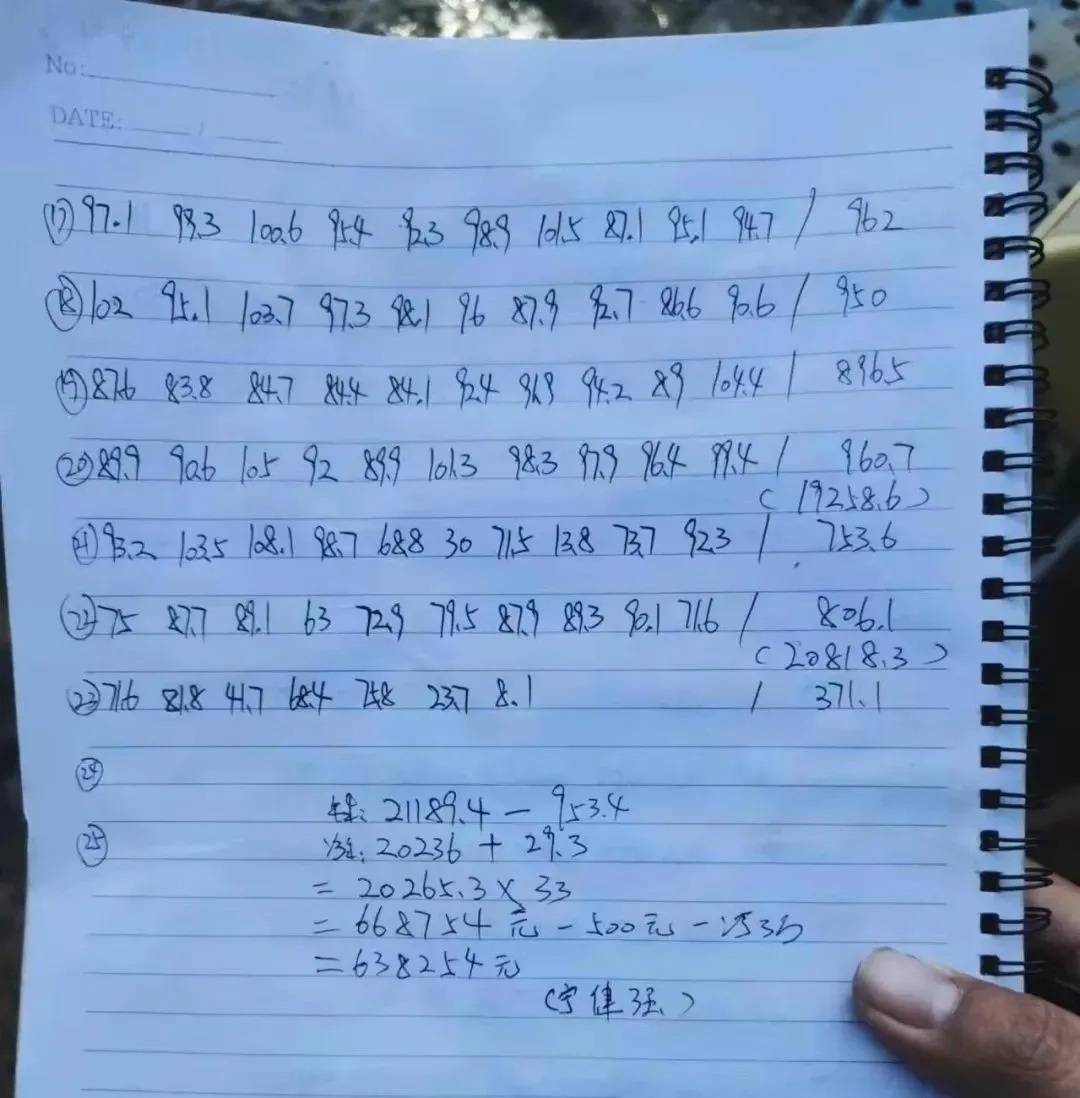 No:
DATE: /
⑰ 97.1 99.3 100.6 95.4 92.3 98.9 101.5 87.1 95.1 94.7 / 962
⑱ 102 95.1 103.7 97.3 98.1 96 87.9 92.7 86.6 90.6 / 950
⑲ 87.6 83.8 84.7 84.4 84.1 92.4 91.9 94.2 89 104.4 / 896.5
⑳ 89.9 90.6 105 92 89.9 101.3 98.3 97.9 96.4 99.4 / 960.7
(19258.6)
㉑ 93.2 103.5 108.1 98.7 68.8 30 71.5 13.8 73.7 92.3 / 753.6
㉒ 75 87.7 89.1 63 72.9 79.5 87.9 89.3 90.1 71.6 / 806.1
(20818.3)
㉓ 71.6 81.8 41.7 68.4 75.8 23.7 8.1 / 371.1
㉔
毛: 21189.4 - 953.4
㉕ 净: 20236 + 29.3
= 20265.3 × 33
= 668754元 - 500元 - 3万
= 638254元
(宁健强)